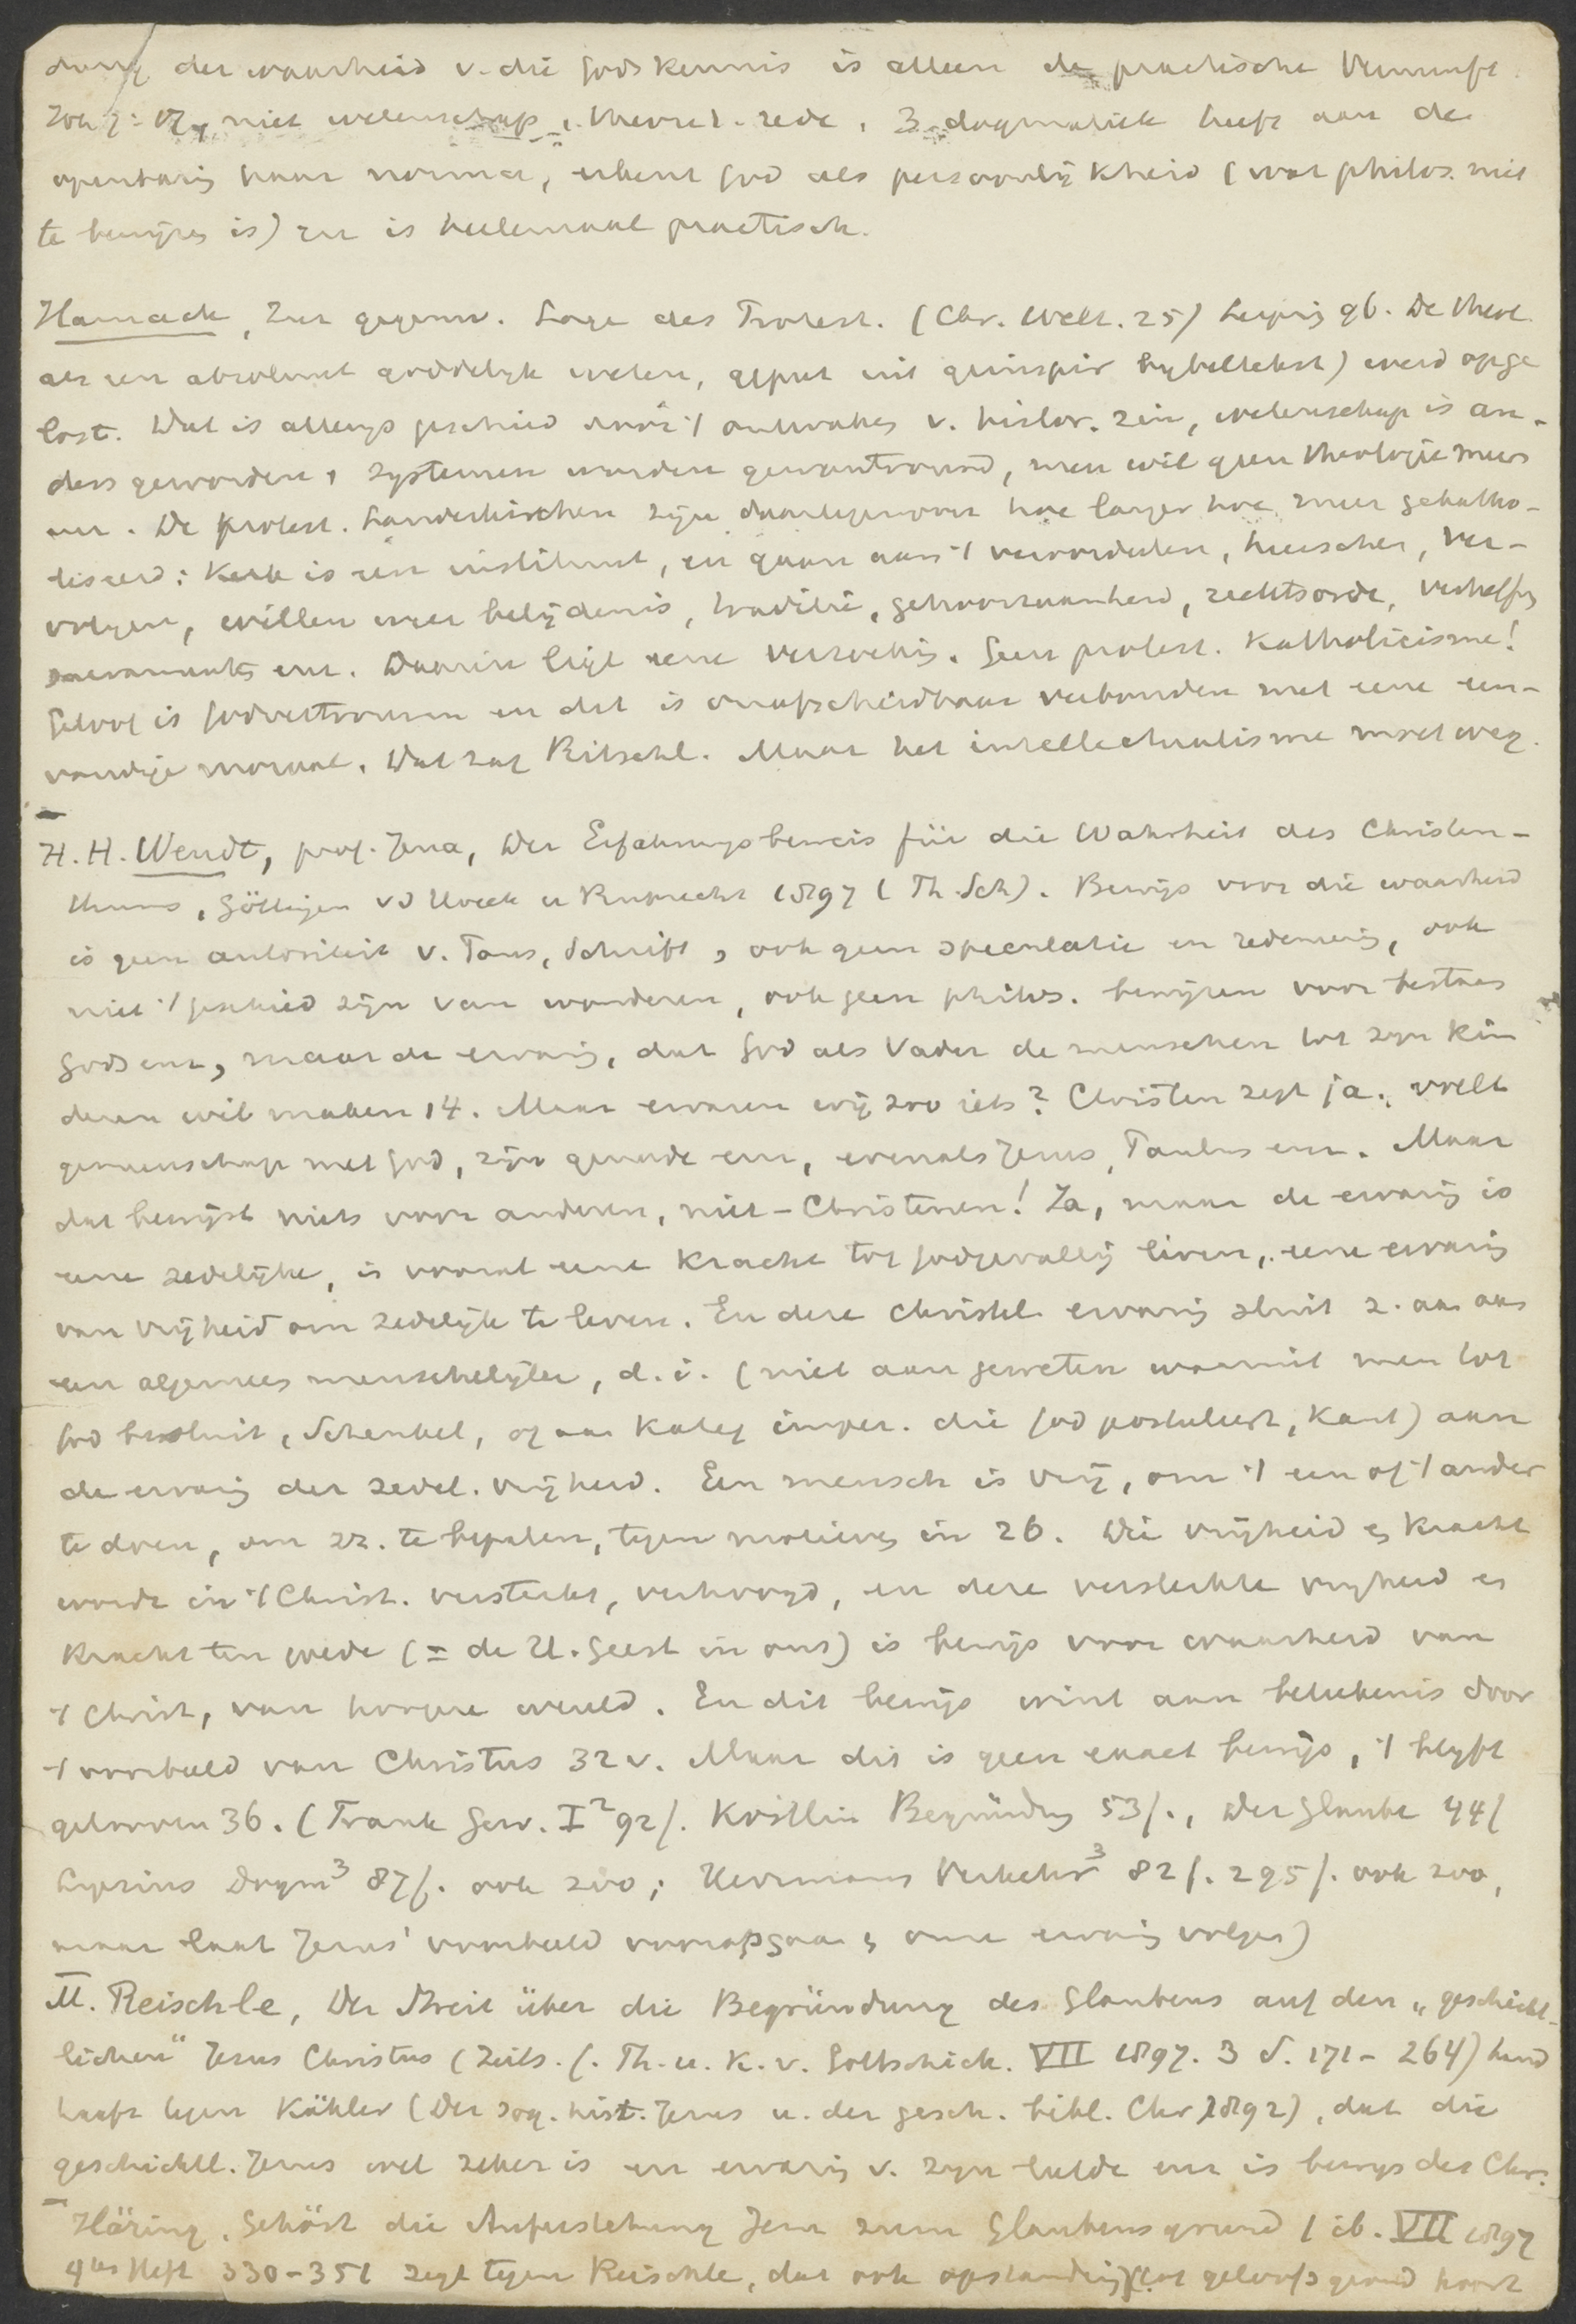 der waarheid v. die godskennis is alleen de practische Vernunft.
niet wetenschap, theoret. rede. 3. dogmatiek heeft aan de
openbaring haar norma, erkent God als persoonlijkheid (wat philos. niet
te bewijzen is) en is heelemaal practisch.
Harnack, Zur gegenw. Lage des Protest. (Chr. Welt. 25) Leipzig 96. De theol.
als een absoluut goddelijk weten, geput uit geinspir bybeltekst) werd opge
lost. Dat is allengs geschied door 't ontwaken v. histor. zin, wetenschap is an-
ders geworden, systemen worden gewantrouwd, men wil geen theologie meer
enz. De protest. Landeskirchen zijn daartegenover hoe langer hoe meer gekatho-
liseerd: Kerk is een instituut, en gaan aan 't veroordeelen, heerschen, ver-
volgen, willen weer belijdenis, traditie, gehoorzaamheid, rechtsorde, verheffing
sacraments enz. Daarin ligt eene verzoeking. Geen protest. Katholicisme!
Geloof is Godvertrouwen en dat is onafscheidbaar verbonden met eene een-
voudige moraal. Dat zag Ritschl. Maar het intellectualisme moet weg.
H. H. Wendt, prof. Jena, Der Erfahrungsbeweis für die Wahrheit des Christen-
thums, Göttingen vd Hoeck u Ruprecht 1897 (Th. Sch). Bewijs voor die waarheid
is geen autoriteit v. Paus, Schrift, ook geen speculatie en redeneering, ook
niet 't geschied zijn van wonderen, ook geen philos. bewijzen voor bestaan
Gods enz, maar de ervaring, dat God als Vader de menschen tot zijn kin
deren wil maken 14. Maar ervaren wij zoo iets? Christen zegt ja. voelt
gemeenschap met God, zijn genade enz, evenals Jezus, Paulus enz. Maar
dat bewijst niets voor anderen, niet-Christenen! Ja, maar de ervaring is
eene zedelijke, is vooral eene kracht tot godgevallig leven, eene ervaring
van vrijheid om zedelijk te leven. En deze christel. ervaring sluit z. aan aan
een algemeen menschelijke, d. i. (niet aan geweten waaruit men tot
God besluit, Schenkel, of aan kateg imper. die God postuleert, Kant) aan
de ervaring der zedel. vrijheid. Een mensch is vrij, om 't een of 't ander
te doen, om zz. te bepalen, tegen motieven in 26. Die vrijheid en kracht
wordt in 't Christ. versterkt, verhoogd, en deze versterkte vrijheid en
kracht ten goede (= de H. Geest in ons) is bewijs voor waarheid van
't Christ, van hoogere wereld. En dit bewijs wint aan beteekenis door
't voorbeeld van Christus 32 v. Maar dit is geen exact bewijs, 't blijft
gelooven 36. (Frank Gew. I² 92f. Köstlin Begründung 53f., Der Glaube 44f
Lipsius Dogm³ 87f. ook zoo; Herrmann Verkehr³ 82f. 295f. ook zoo,
maar laat Jezus' voorbeeld voorafgaan en onze ervaring volgen)
M. Reischle, Der Streit über die Begründung des Glaubens auf den „geschicht-
lichen" Jesus Christus (Zeits. f. Th. u. K. v. Gottschick. VII 1897. 3 S. 171-264) hand
haaft tegen Kähler (Der sog. hist. Jesus u. der gesch. bibl. Chr 1892), dat die
geschichtl. Jezus wel zeker is en ervaring v. zijn liefde enz is bewijs des Chr.
Häring, Gehört die Auferstehung Jesu zum Glaubensgrund (ib. VII 1897
4tes Heft 330-351 zegt tegen Reischle, dat ook opstanding tot geloofsgrond hoort